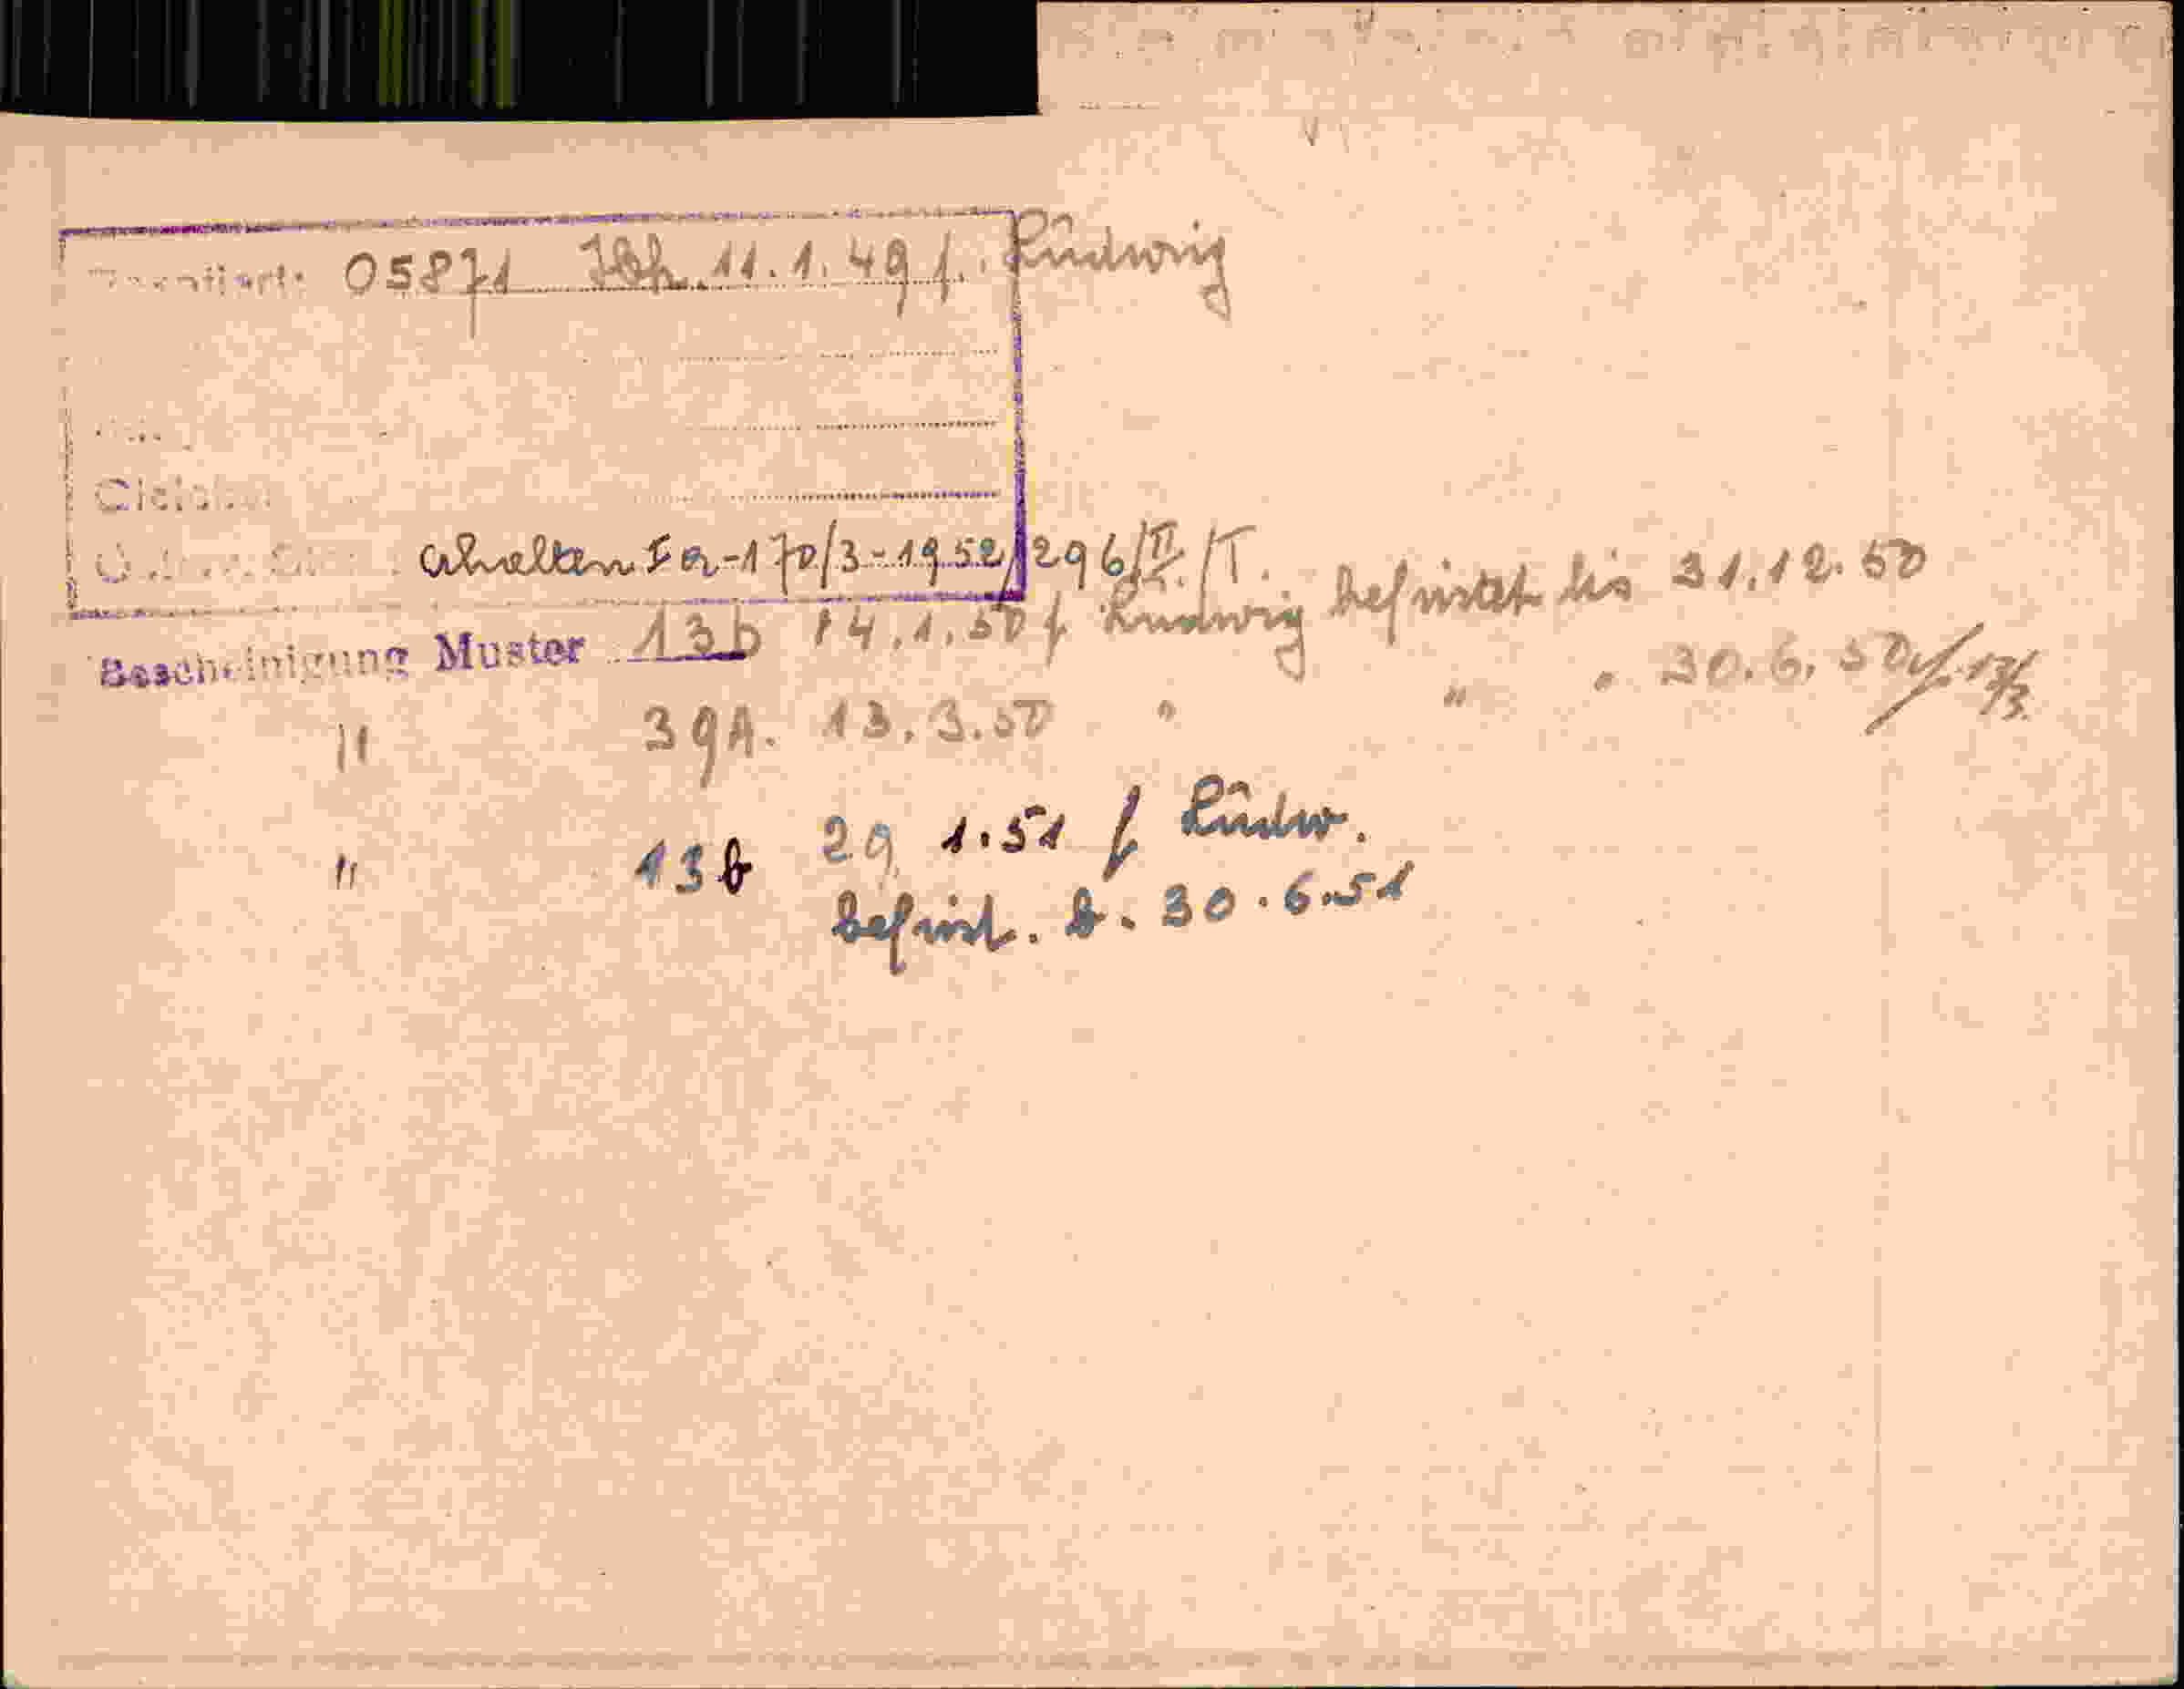 05871 11.1.49 f. Ludwig
erhalten -170/3-1952/296/II./T.
Bescheinigung Muster 13b 14.1.50 f. Ludwig befristet bis 31.12.50
" 39A. 13.3.50 " " " 30.6.50
" 13b 29 1.51 f Ludw.
befrist. b. 30.6.51